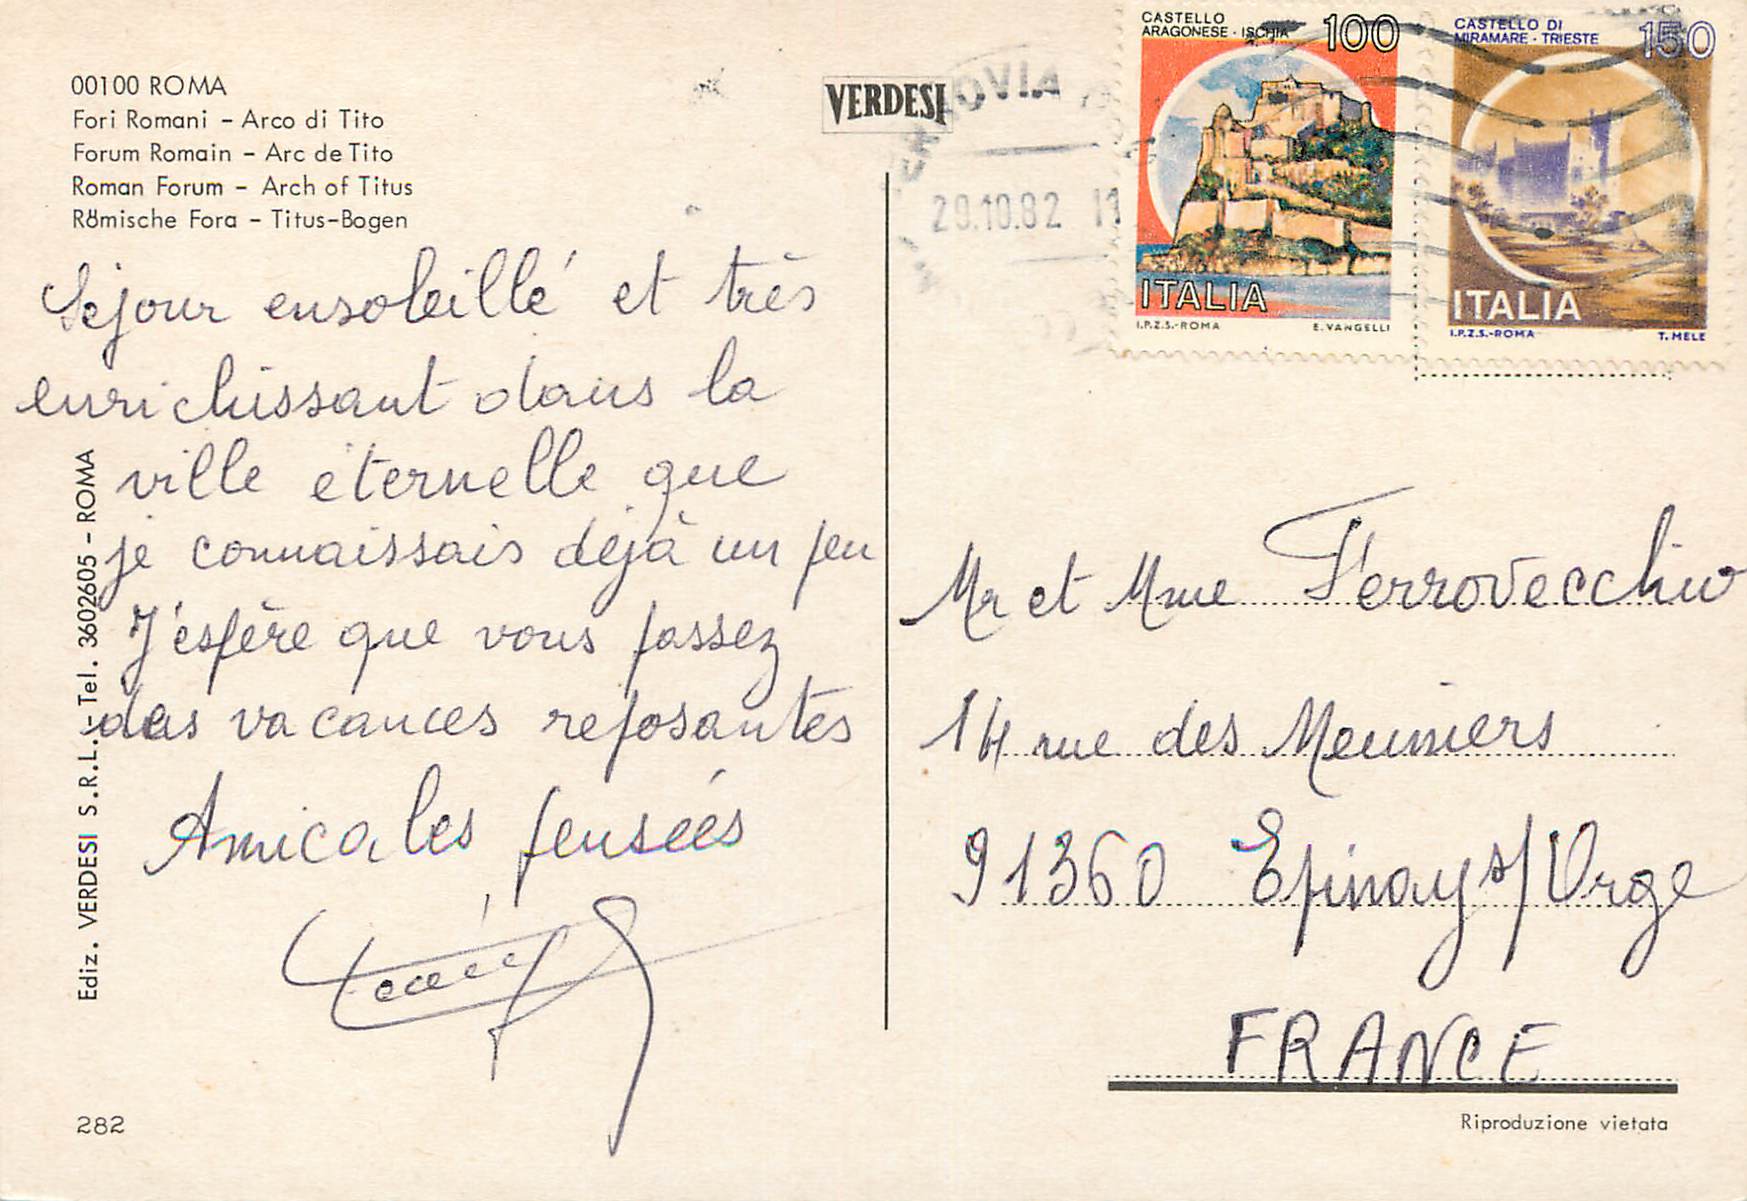 00100 ROMA
Fori Romani - Arco di Tito
Forum Romain - Arc de Tito
Roman Forum - Arch of Titus
Römische Fora - Titus-Bogen
Séjour ensoleillé et très
enrichissant dans la
ville éternelle que
je connaissais déjà un peu
J'espère que vous passez
des vacances reposantes
Amicales pensées
Ediz. VERDESI S.R.L. - Tel. 3602605 - ROMA
282
VERDESI
29.10.82 11
CASTELLO
ARAGONESE - ISCHIA 100
ITALIA
I.P.Z.S.-ROMA E. VANGELLI
CASTELLO DI
MIRAMARE - TRIESTE 150
ITALIA
I.P.Z.S.-ROMA T. MELE
Mr et Mme Ferrovecchio
14 rue des Meuniers
91360 Epinay s/ Orge
FRANCE
Riproduzione vietata